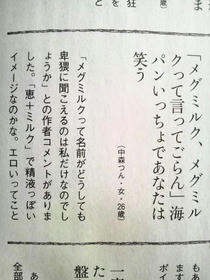 「メグミルク、メグミル
クって言ってごらん」海
パンいっちょであなたは
笑う
（中森つん・女・26歳）
「メグミルクって名前がどうしても
卑猥に聞こえるのは私だけなのでし
ょうか」との作者コメントがありま
した。「恵＋ミルク」で精液っぽい
イメージなのかな。エロいってこと